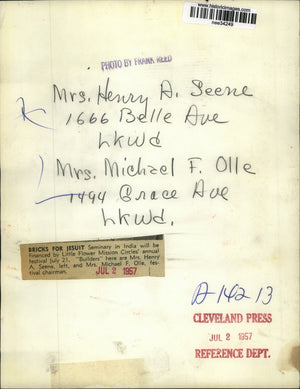 www.historicimages.com
nee34249
PHOTO BY FRANK REED
Mrs. Henry A. Seene
1666 Belle Ave
LKWd
Mrs. Michael F. Olle
1494 Grace Ave
LKWd.
BRICKS FOR JESUIT Seminary in India will be
financed by Little Flower Mission Circles' annual
festival July 21. "Builders" here are Mrs. Henry
A. Seene, left, and Mrs. Michael F. Olle, fes-
tival chairman.
JUL 2 1957
A-142 13
CLEVELAND PRESS
JUL 2 1957
REFERENCE DEPT.